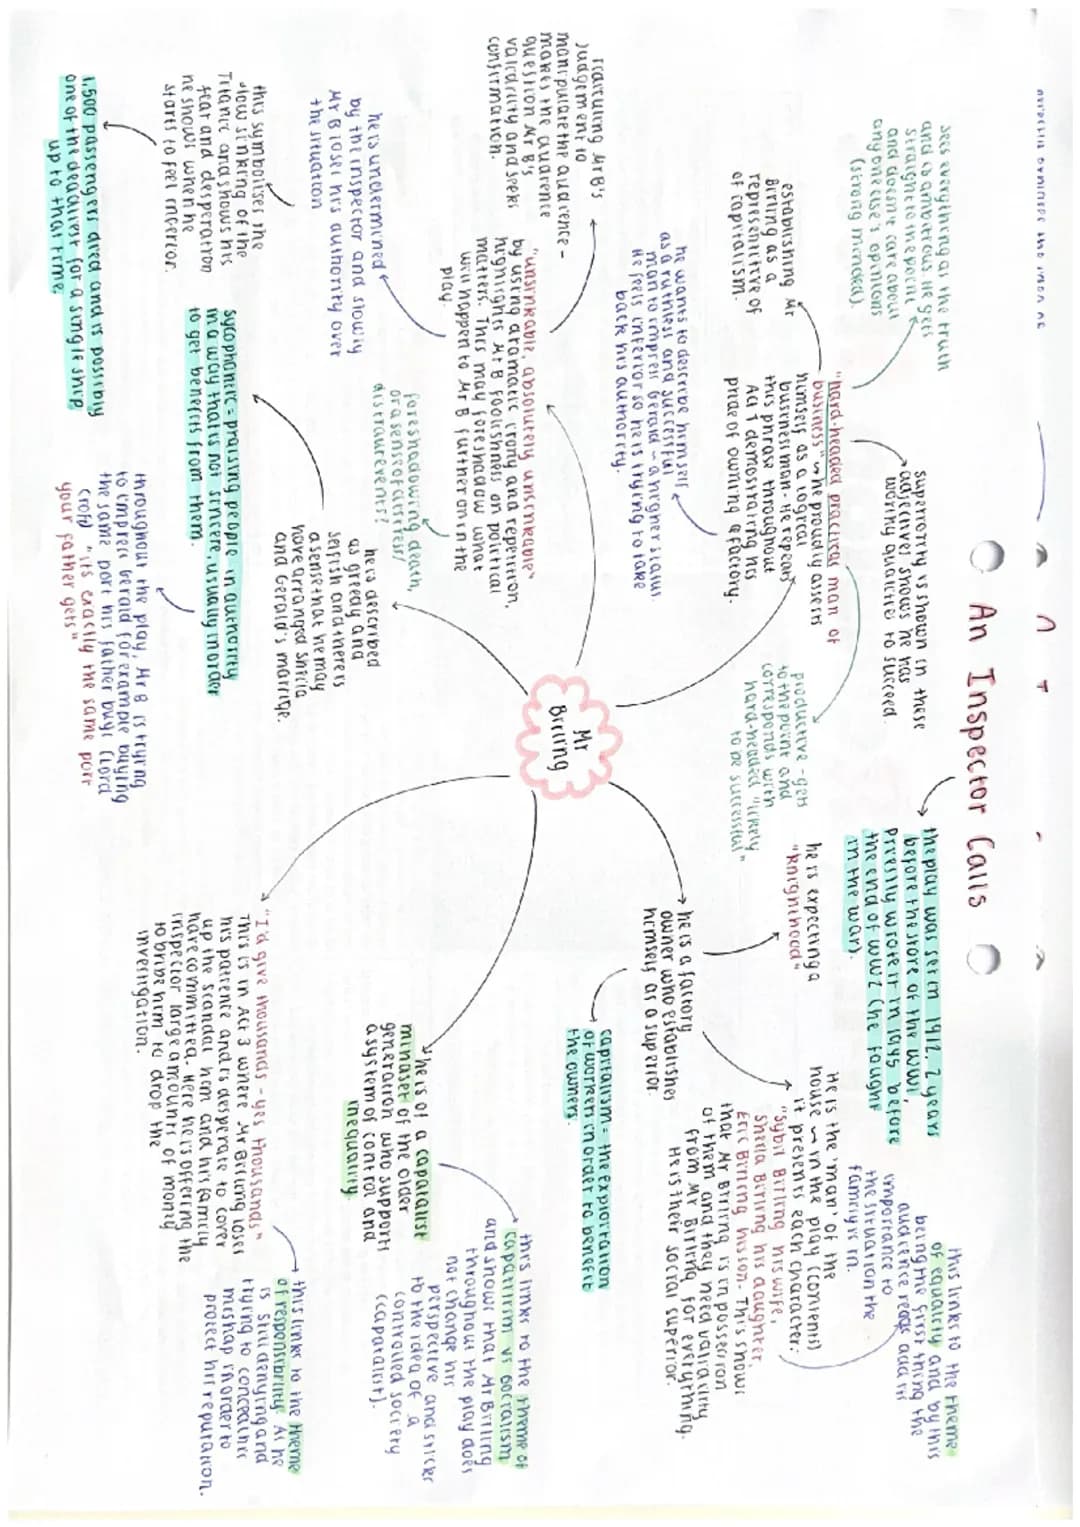 An Inspector Calls
the play was set in 1912, 2 years
before the store of the WW1,
Pressly wrote it in 1945 before
the end of WW2 (he fought
in the war).
this links to the theme
of equality and by this
being the first thing the
audience reads adds its
importance to
the situation the
family is in.
Superiority is shown in these
adjectives shows he has
worthy qualitie to succeed
sees everything as the truth
and is ambitious. He gets
straight to the point
and doesn't care about
anyone else's opinions
(strong minded)
"hard-headed practical man of
business" ~ he proudly asserts
himself as a logical
businessman - He repeats
this phrase throughout
Act 1 demostrating his
pride of owning a factory.
establishing Mr
Birling as a
representitive of
capitalism.
productive - gets
to the point and
corresponds with
hard-headed "likely
to be successful"
he wants to describe himself
as a ruthless and successful
man to impress Gerald ~ a higher status
He feels inferior so he is trying to take
back his authority.
Mr
Birling
he is expecting a
"Knighthood"
he is a factory
owner who establishes
himself as a suprior
He is the 'man' of the
house ~ in the play (contents)
it presents each character:
"Sybil Birling his wife,
Sheila Birling his daughter,
Eric Birling his son - This shows
that Mr Birling is in possession
of them and they need validity
from Mr Birling for everything.
He is their social superior.
capitalism = the exploitation
of workers in order to benefit
the owners.
"unsinkable, absolutely unsinkable"
by using dramatic irony and repetition,
highlights Mr B foolishness on political
matters. This may foreshadow what
will happen to Mr B further on in the
play.
Mr B's
judgement to
manipulate the audience -
makes the audience
question Mr B's
validity and seeks
confirmation.
he is undermined
by the inspector and slowly
Mr B lose his authority over
the situation
this symbolises the
slow sinking of the
Titanic and shows his
fear and desperation
he shows when he
starts to feel inferior.
1,500 passengers died and is possibly
one of the deadliest for a single ship
up to that time.
foreshadowing death,
or a sense of distress/
distraughtness?
he is described
as greedy and
selfish and there is
a sense that he may
have arranged Sheila
and Gerald's marrige.
Sycophantic = praising people in authority
in a way that is not sincere, usually in order
to get benefits from them.
throughout the play, Mr B is trying
to impress Gerald for example buying
the same port his father buys (Lord
Croft) "it's exactly the same port
your father gets"
he is of a capitalist
mindset of the older
generation who supports
a system of control and
inequality
this links to the theme of
capitalism vs socialism
and shows that Mr Birling
throughout the play does
not change his
perspective and sticks
to the idea of a
controlled society
(capitalist).
"I'd give thousands - yes thousands"
This is in Act 3 where Mr Birling loses
his patience and is desperate to cover
up the scandal him and his family
have committed. Here he is offering the
inspector large amounts of money
to bribe him to drop the
investigation.
this links to the theme
of responsibility. As he
is still denying and
trying to conceal his
mishap in order to
protect his reputation.